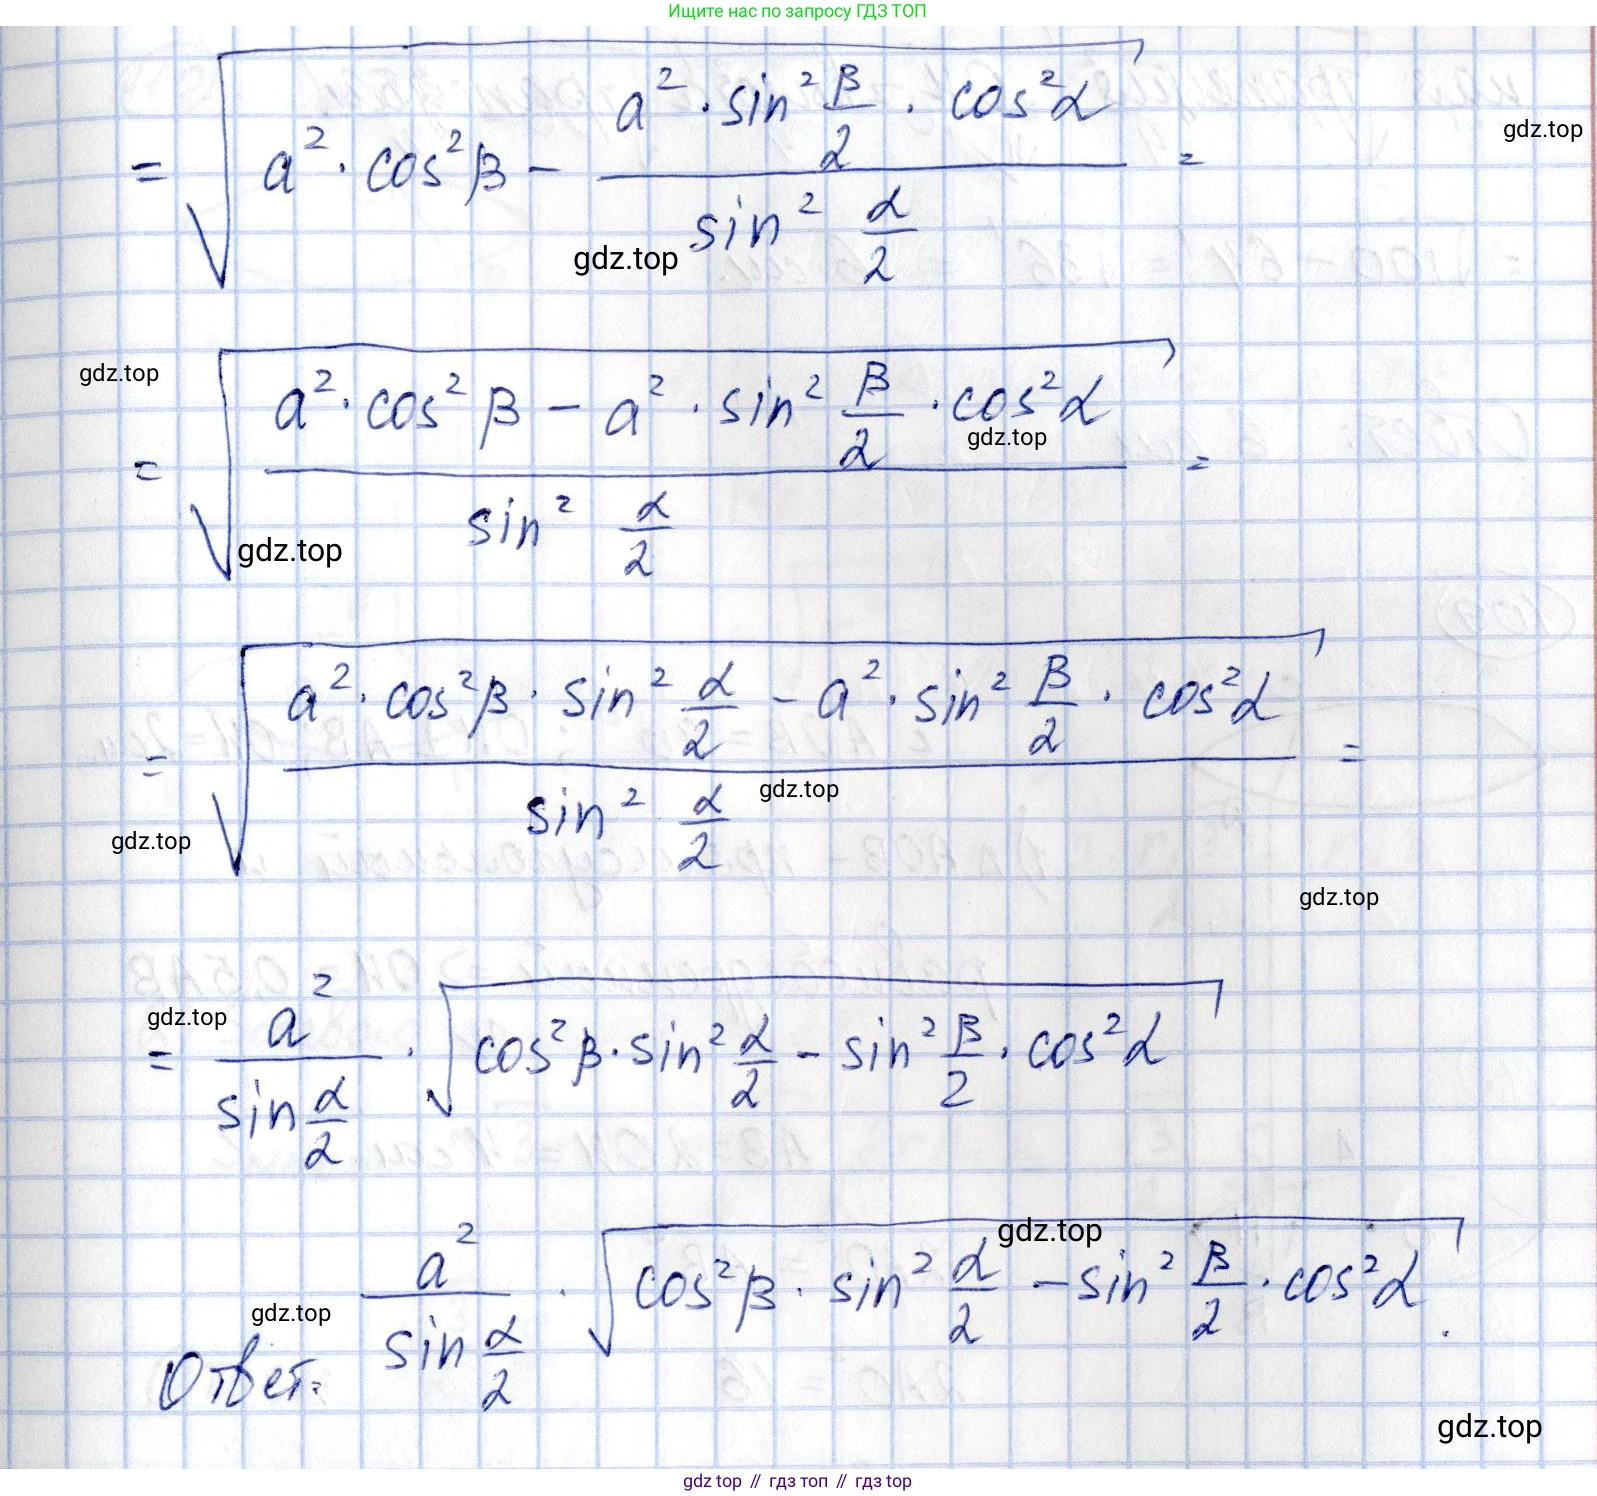 Ищите нас по запросу ГДЗ ТОП
= √(a² · cos²β − (a² · sin² β/2 · cos²α) / (sin² α/2)) =
gdz.top
gdz.top
gdz.top
= √((a² · cos²β − a² · sin² β/2 · cos²α) / (sin² α/2)) =
gdz.top
gdz.top
= √((a² · cos²β · sin² α/2 − a² · sin² β/2 · cos²α) / (sin² α/2)) =
gdz.top
gdz.top
gdz.top
gdz.top
= a² / (sin α/2) · √(cos²β · sin² α/2 − sin² β/2 · cos²α)
gdz.top
gdz.top
Ответ: a² / (sin α/2) · √(cos²β · sin² α/2 − sin² β/2 · cos²α).
gdz.top
gdz top // гдз топ // gdz top